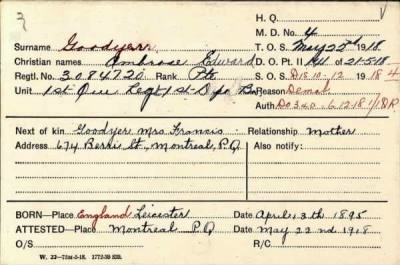 H. Q.
M. D. No. 4
Surname Goodyerr T. O. S. May 22nd 1918
Christian names Ambrose Edward D. O. Pt. II 141 of 21-5-18
Regtl. No. 3084720 Rank Pte S. O. S. Dis 10-12 1918 4
Unit 1st Que Regt 1st Depo Bn Reason Demob
Auth. DO 340 6-12-18 1DD
Next of kin Goodyer Mrs Francis Relationship Mother
Address 674 Berri St., Montreal, P.Q. Also notify:
BORN—Place England Leicester Date April 3th 1895
ATTESTED—Place Montreal P Q Date May 22nd 1918
O/S R/C